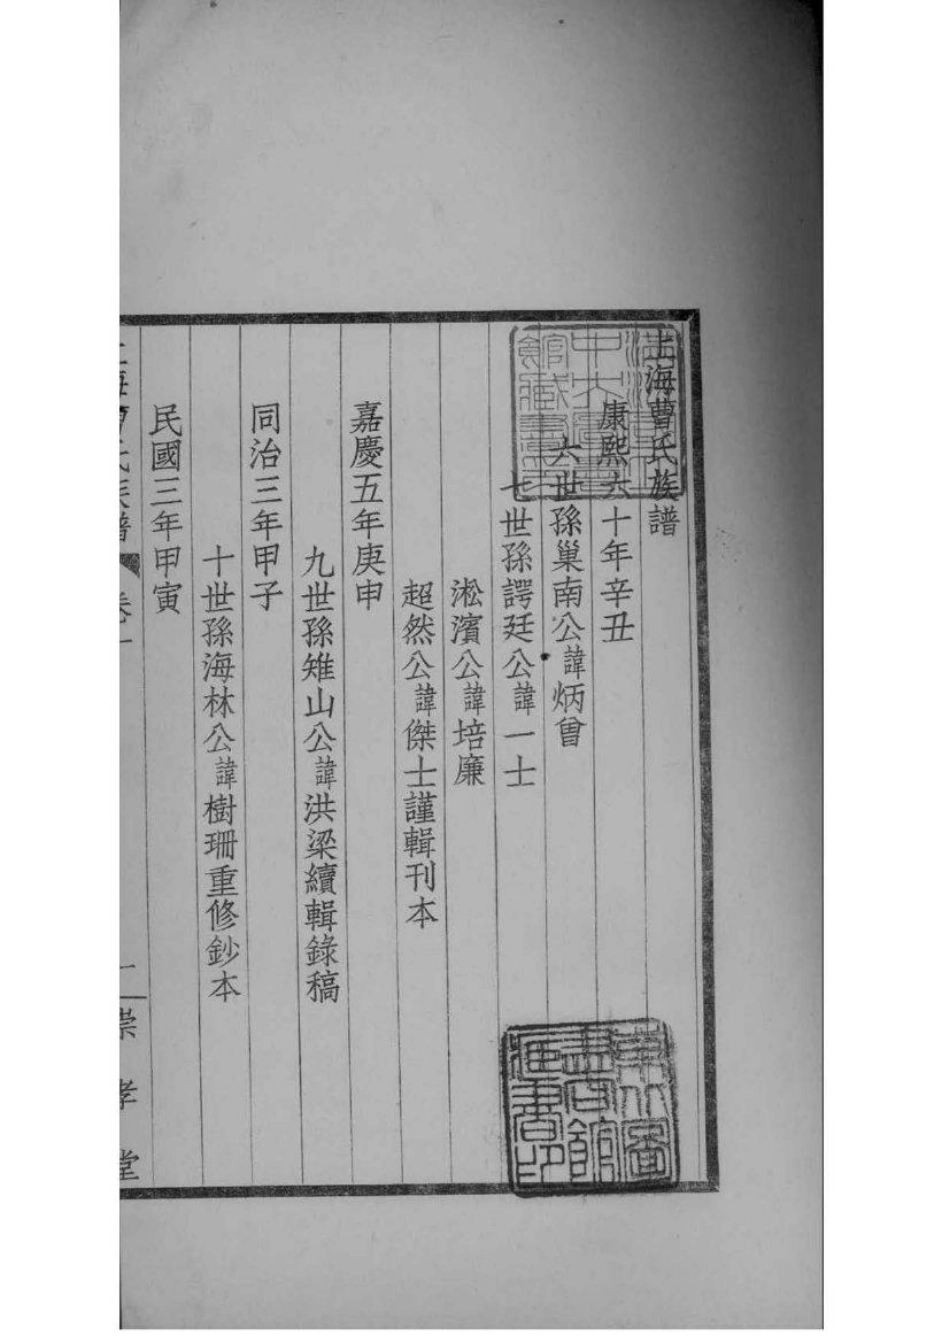 上海曹氏族譜
康熙六十年辛丑
六世孫巢南公諱炳曾
七世孫諤廷公諱一士
淞濱公諱培廉
超然公諱傑士謹輯刊本
嘉慶五年庚申
九世孫雉山公諱洪梁續輯錄稿
同治三年甲子
十世孫海林公諱樹珊重修鈔本
民國三年甲寅
上海曹氏族譜 卷一 一 崇孝堂